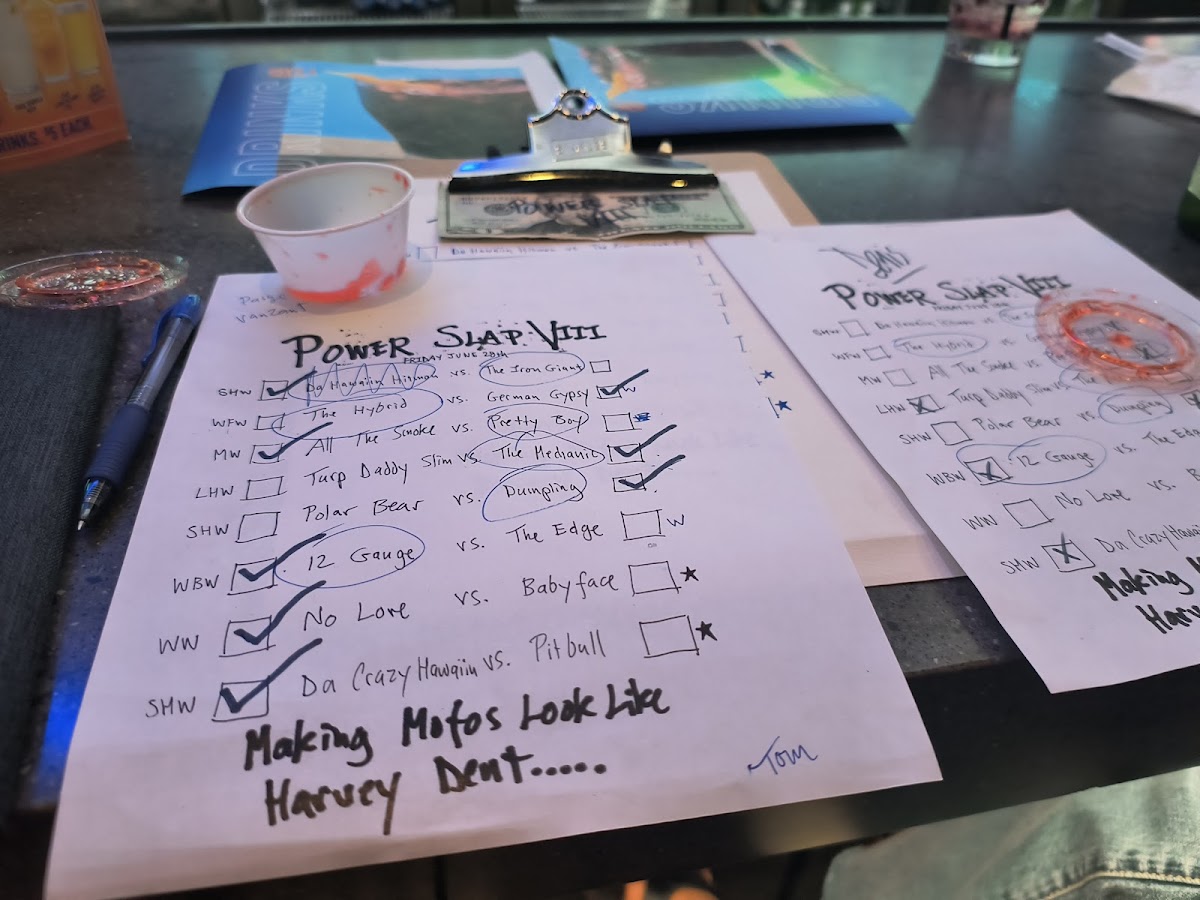 DRINKS
DRINKS. $5 EACH
POWER SLAP
VIII
Da Hawaiin Hitman vs. The
Paige
Vanzant
POWER SLAP VIII
FRIDAY JUNE 28th
SHW Da Hawaiin Hitman vs. The Iron Giant
WFW The Hybrid vs. German Gypsy W
MW All The Smoke vs. Pretty Boy
LHW Turp Daddy Slim vs. The Mechanic
SHW Polar Bear vs. Dumpling
WBW 12 Gauge vs. The Edge W
WW No Love vs. Babyface
SHW Da Crazy Hawaiin vs. Pitbull
Making Mofos Look Like
Harvey Dent.....
Tom
POWER SLAP VIII
SHW Da Hawaiin Hitman vs. The
WFW The Hybrid vs.
MW All The Smoke vs.
LHW Turp Daddy Slim vs. The
SHW Polar Bear vs. Dumpling
WBW 12 Gauge vs. The Edge
WW No Love vs.
SHW Da Crazy Hawaii
Making
Harv